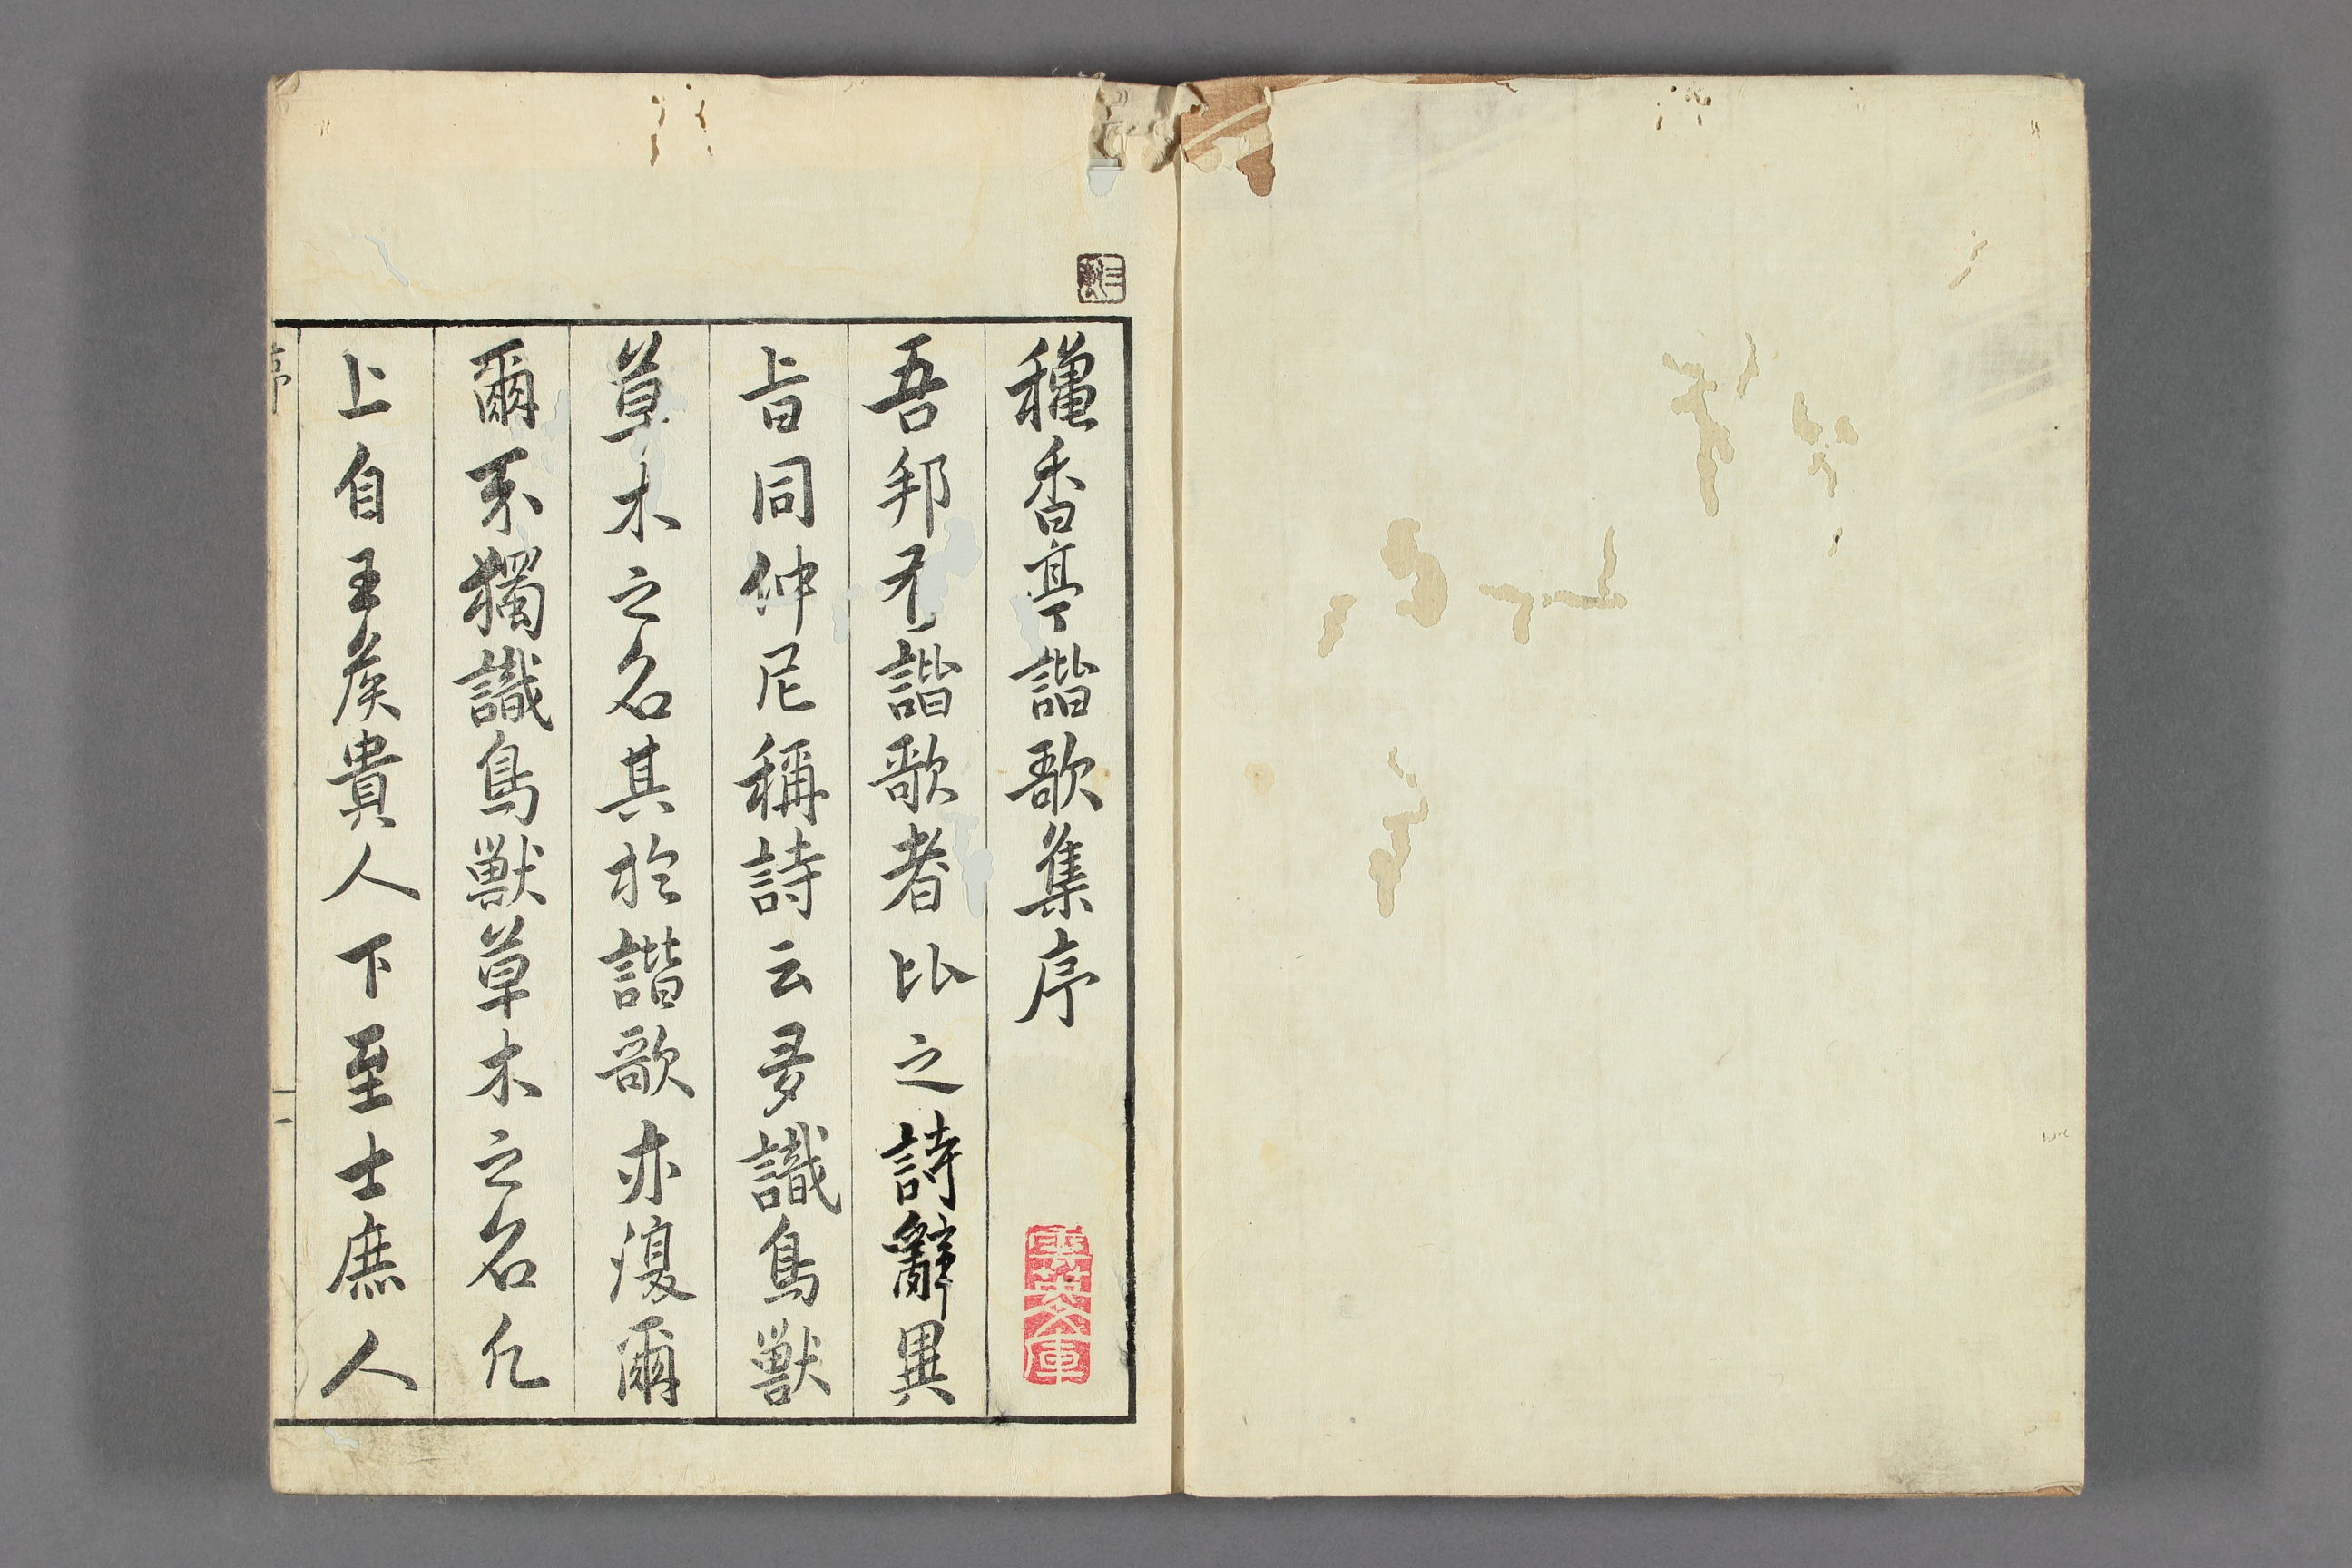 穐香亭諧歌集序
吾邦有諧歌者比之詩辭異
旨同仲尼稱詩云多識鳥獸
草木之名其於諧歌亦復爾
爾不獨識鳥獸草木之名凡
上自王侯貴人下至士庶人
序
雲英文庫